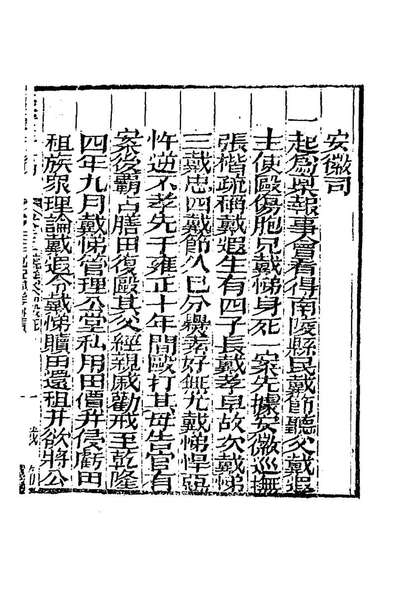 安徽司
一起為稟報事會看得南陵縣民戴節聽父戴遐
主使毆傷胞兄戴悌身死一案先據安徽巡撫
張楷疏稱戴遐生有四子長戴孝早故次戴悌
三戴忠四戴節久已分爨孝好無尤戴悌悍惡
忤逆不孝先于雍正十年間毆打其母告官有
案後霸占膳田復毆其父經親戚勸戒至乾隆
四年九月戴悌管理公堂私用田價并侵虧田
租族眾理論戴遐令戴悌贖田還租并欲將公